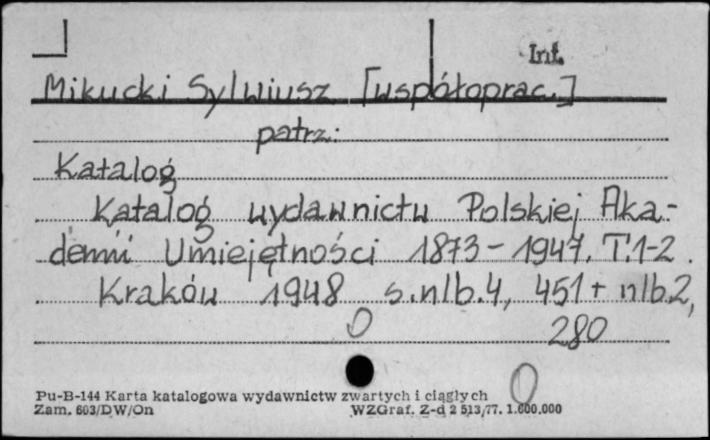 Inf.
Mikucki Sylwiusz [współoprac.]
patrz:
Katalog
Katalog wydawnictw Polskiej Aka-
demii Umiejętności 1873-1947. T.1-2.
Kraków 1948 s.nlb.4, 451 + nlb.2,
280
Pu-B-144 Karta katalogowa wydawnictw zwartych i ciągłych
Zam. 603/DW/On WZGraf. Z-d 2 513/77. 1.600.000